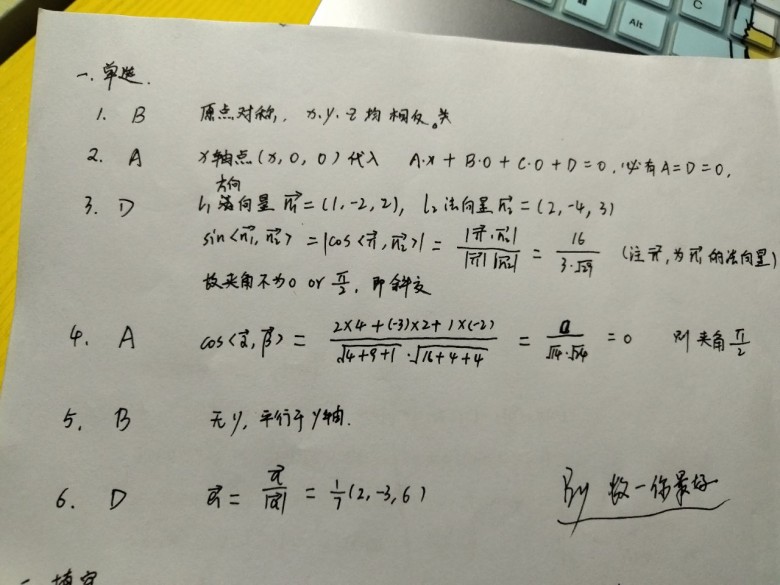 一. 单选.
1. B 原点对称, x.y.z 均相反。关
2. A x轴点(x,0,0)代入 A·x+B·0+C·0+D=0, 必有A=D=0,
方向
3. D l₁ 法向量 n₁=(1,-2,2), l₂法向量n₂=(2,-4,3)
sin<n₁,n₂> =|cos<n,n₂>| = |n·n₂| / |n| |n₂| = 16 / 3·√29 (注n,为n₁的法向量)
故夹角不为0 or π/2, 即斜交
4. A cos<α,β> = 2×4+(-3)×2+1×(-2) / √4+9+1·√16+4+4 = 0 / √14·√24 = 0 则夹角 π/2
5. B 无y, 平行于y轴.
6. D a₁ = a / |a| = 1/7(2,-3,6)
By 数一你最好
二. 填空
Alt
C